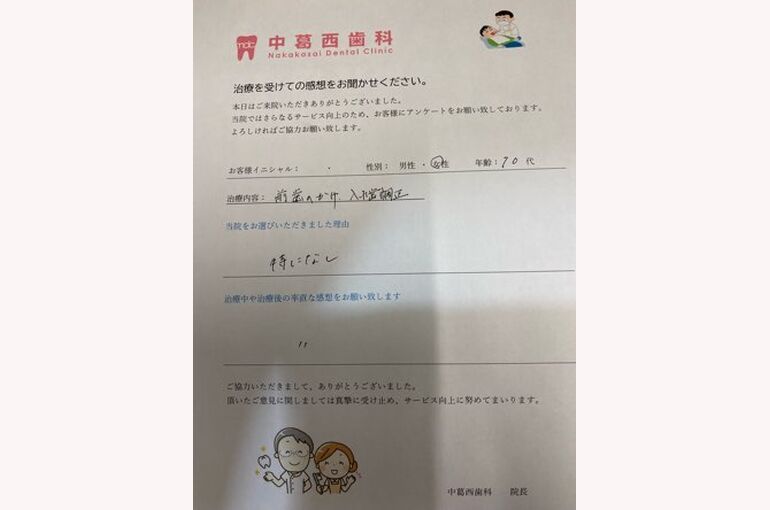 ndc 中葛西歯科
Nakakasai Dental Clinic
治療を受けての感想をお聞かせください。
本日はご来院いただきありがとうございました。
当院ではさらなるサービス向上のため、お客様にアンケートをお願い致しております。
よろしければご協力お願い致します。
お客様イニシャル： ・ 性別： 男性 ・ 女性 年齢：70 代
治療内容： 前歯のかけ、入れ歯調正
当院をお選びいただきました理由
特になし
治療中や治療後の率直な感想をお願い致します
〃
ご協力いただきまして、ありがとうございました。
頂いたご意見に関しましては真摯に受け止め、サービス向上に努めてまいります。
中葛西歯科 院長